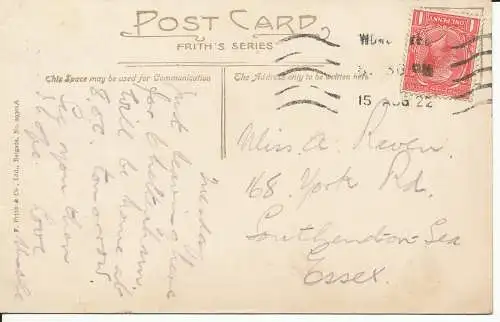 POST CARD
FRITH'S SERIES
This Space may be used for Communication
The Address only to be written here
ONE PENNY
15 AUG 22
F. Frith & Co., Ltd., Reigate. No.
Tuesday
Just leaving here
for Cheltenham.
Will be home at
8.00. tomorrow
See you then
I hope. Love
Miss A. Raven.
168. York Rd.
Southend on Sea
Essex.